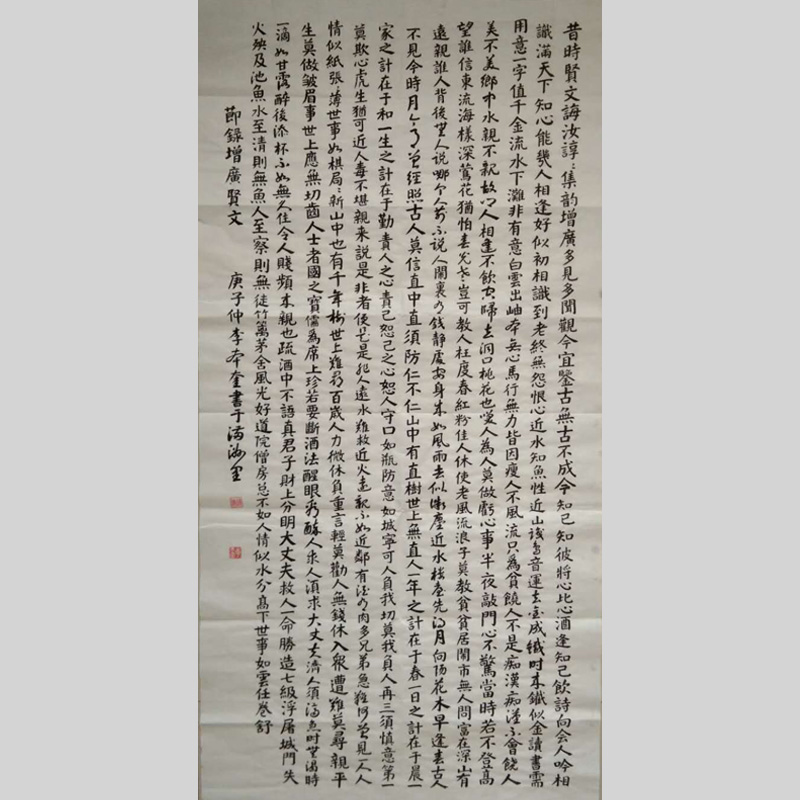 昔時賢文誨汝諄諄集韵增廣多見多聞觀今宜鑒古無古不成今知己知彼將心比心酒逢知己飲詩向会人吟相
識滿天下知心能幾人相逢好似初相識到老終無怨恨心近水知魚性近山識鸟音運去金成鐵时来鐵似金讀書需
用意一字值千金流水下灘非有意白雲出岫本無心馬行無力皆因瘦人不風流只為貧饒人不是痴漢痴漢不會饒人
美不美鄉中水親不親故人相逢不飲空歸去洞口桃花也笑人為人莫做虧心事半夜敲門心不驚當時若不登高
望誰信東流海樣深鶯花猶怕春光老豈可教人枉度春紅粉佳人休使老風流浪子莫教貧貧居鬧市無人問富在深山有
遠親誰人背後無人説哪个人前不説人鬧裏有錢靜處安身来如風雨去似微塵近水楼臺先得月向陽花木早逢春古人
不見今時月今月曾經照古人莫信直中直須防仁不仁山中有直樹世上無直人一年之計在于春一日之計在于晨一
家之計在于和一生之計在于勤責人之心責己恕己之心恕人守口如瓶防意如城寧可人負我切莫我負人再三須慎意第一
莫欺心虎生猶可近人毒不堪親来説是非者便是是非人遠水难救近火遠親不如近鄰有酒有肉多兄弟急难何曾見一人人
情似紙張張薄世事如棋局局新山中也有千年樹世上难尋百歲人力微休負重言輕莫勸人無錢休入衆遭難莫尋親平
生莫做皺眉事世上應無切齒人士者國之寶儒為席上珍若要斷酒法醒眼看醉人求人須求大丈夫濟人須濟急时無渴時
一滴如甘露醉後添杯不如無久住令人賤頻来親也疏酒中不語真君子財上分明大丈夫救人一命勝造七級浮屠城門失
火殃及池魚水至清則無魚人至察則無徒竹籬茅舍風光好道院僧房总不如人情似水分高下世事如雲任卷舒
節錄增廣賢文 庚子仲李本奎書于